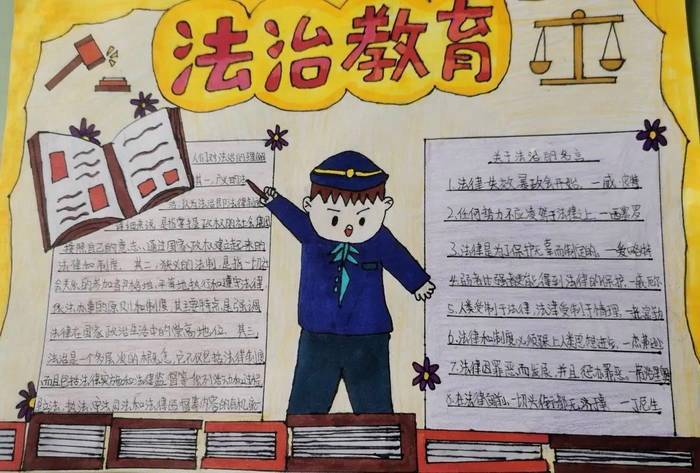 法治教育
人们对法治的理解
其一，广义的法
认为法治即法律制度
详细来说，是指掌握政权的社会集团
按照自己的意志、通过国家政权建立起来的
法律和制度。其二，狭义的法制，是指一切
社会关系的参加者严格地、平等地执行和遵守法律，
依法办事的原则和制度。其主要特点是强调
法律在国家政治生活中的崇高地位。其三，
法治是一个多层次的概念，它不仅包括法律制度，
而且包括法律实施和法律监督等一系列活动和过程
关于法治的名言
1.法律失效暴政就开始。一威·皮特
2.任何势力不应凌驾于法律之上。一西塞罗
3.法律是为了保护无辜而制定的。一爱略特
4.弱者比强者更能得到法律的保护。一威·厄尔
5.人类受制于法律，法律受制于情理。一托·富勒
6.法律和制度必须跟上人类思想进步。一杰弗逊
7.法律因罪恶而发展，并且惩办罪恶。
8.在法律面前，一切人